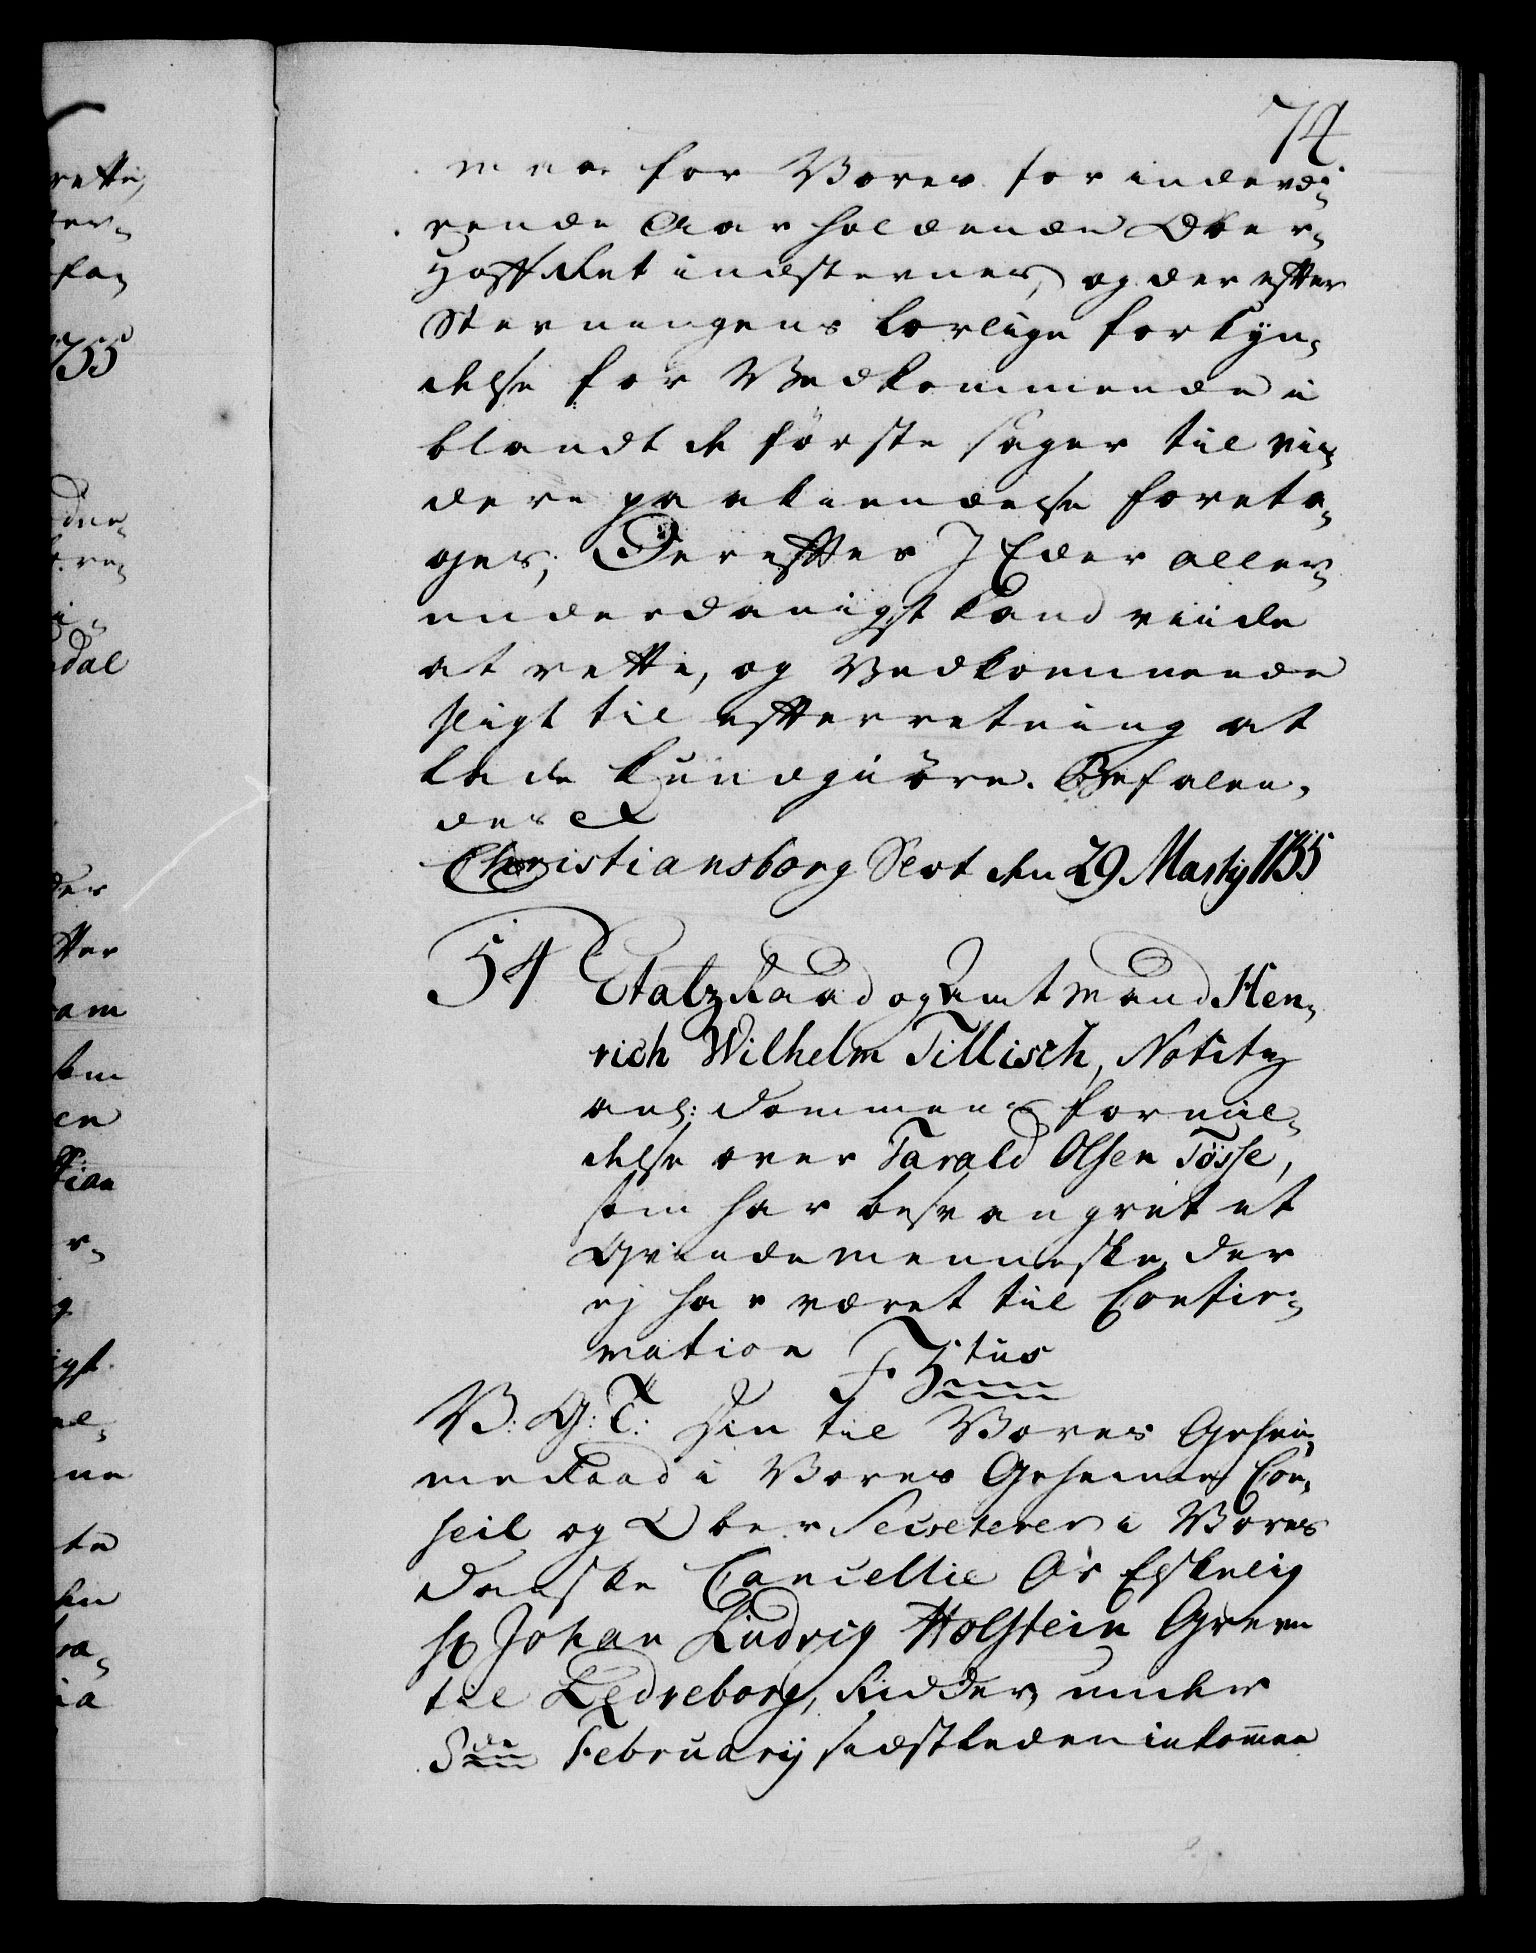 74
men for Vores for indervæ¬
rende Aar holdende Ober¬
Hoff Ret indstevnes, og der efter
Stevningens lovlige forkyn¬
delse for Vedkommende i
blandt de første sager til vii¬
dere paakiendelse foreta¬
ges; Derefter I Eder aller¬
underdanigst kand viide
at rette, og Vedkommende
sligt til efterretning at
lade kundgiøre. Befalen¬
des &
Christiansborg Slot den 29 Martij 1755
54 Etatz Raad og Amtmand Hen¬
rich Wilhelm Tillisch, Notitz
anl: Dommens formil¬
delse over Tarald Olsen Tøsse,
som har besvangret et
Qvindemenneske, der
ej har været til Confir¬
mation F. 5tus
V: G: T: Hin til Vores Gehei¬
me Raad i Vores Geheime Con¬
seil og Ober Secreterer i Vores
Danske Cancellie Os Elskelig
Hr Johan Ludvig Holstein Greve
til Ledreborg, Ridder, under
8de February sidstleden inkommen
rette,
ter¬
1755
dal
der
tter
ham
som
en
tian
igst